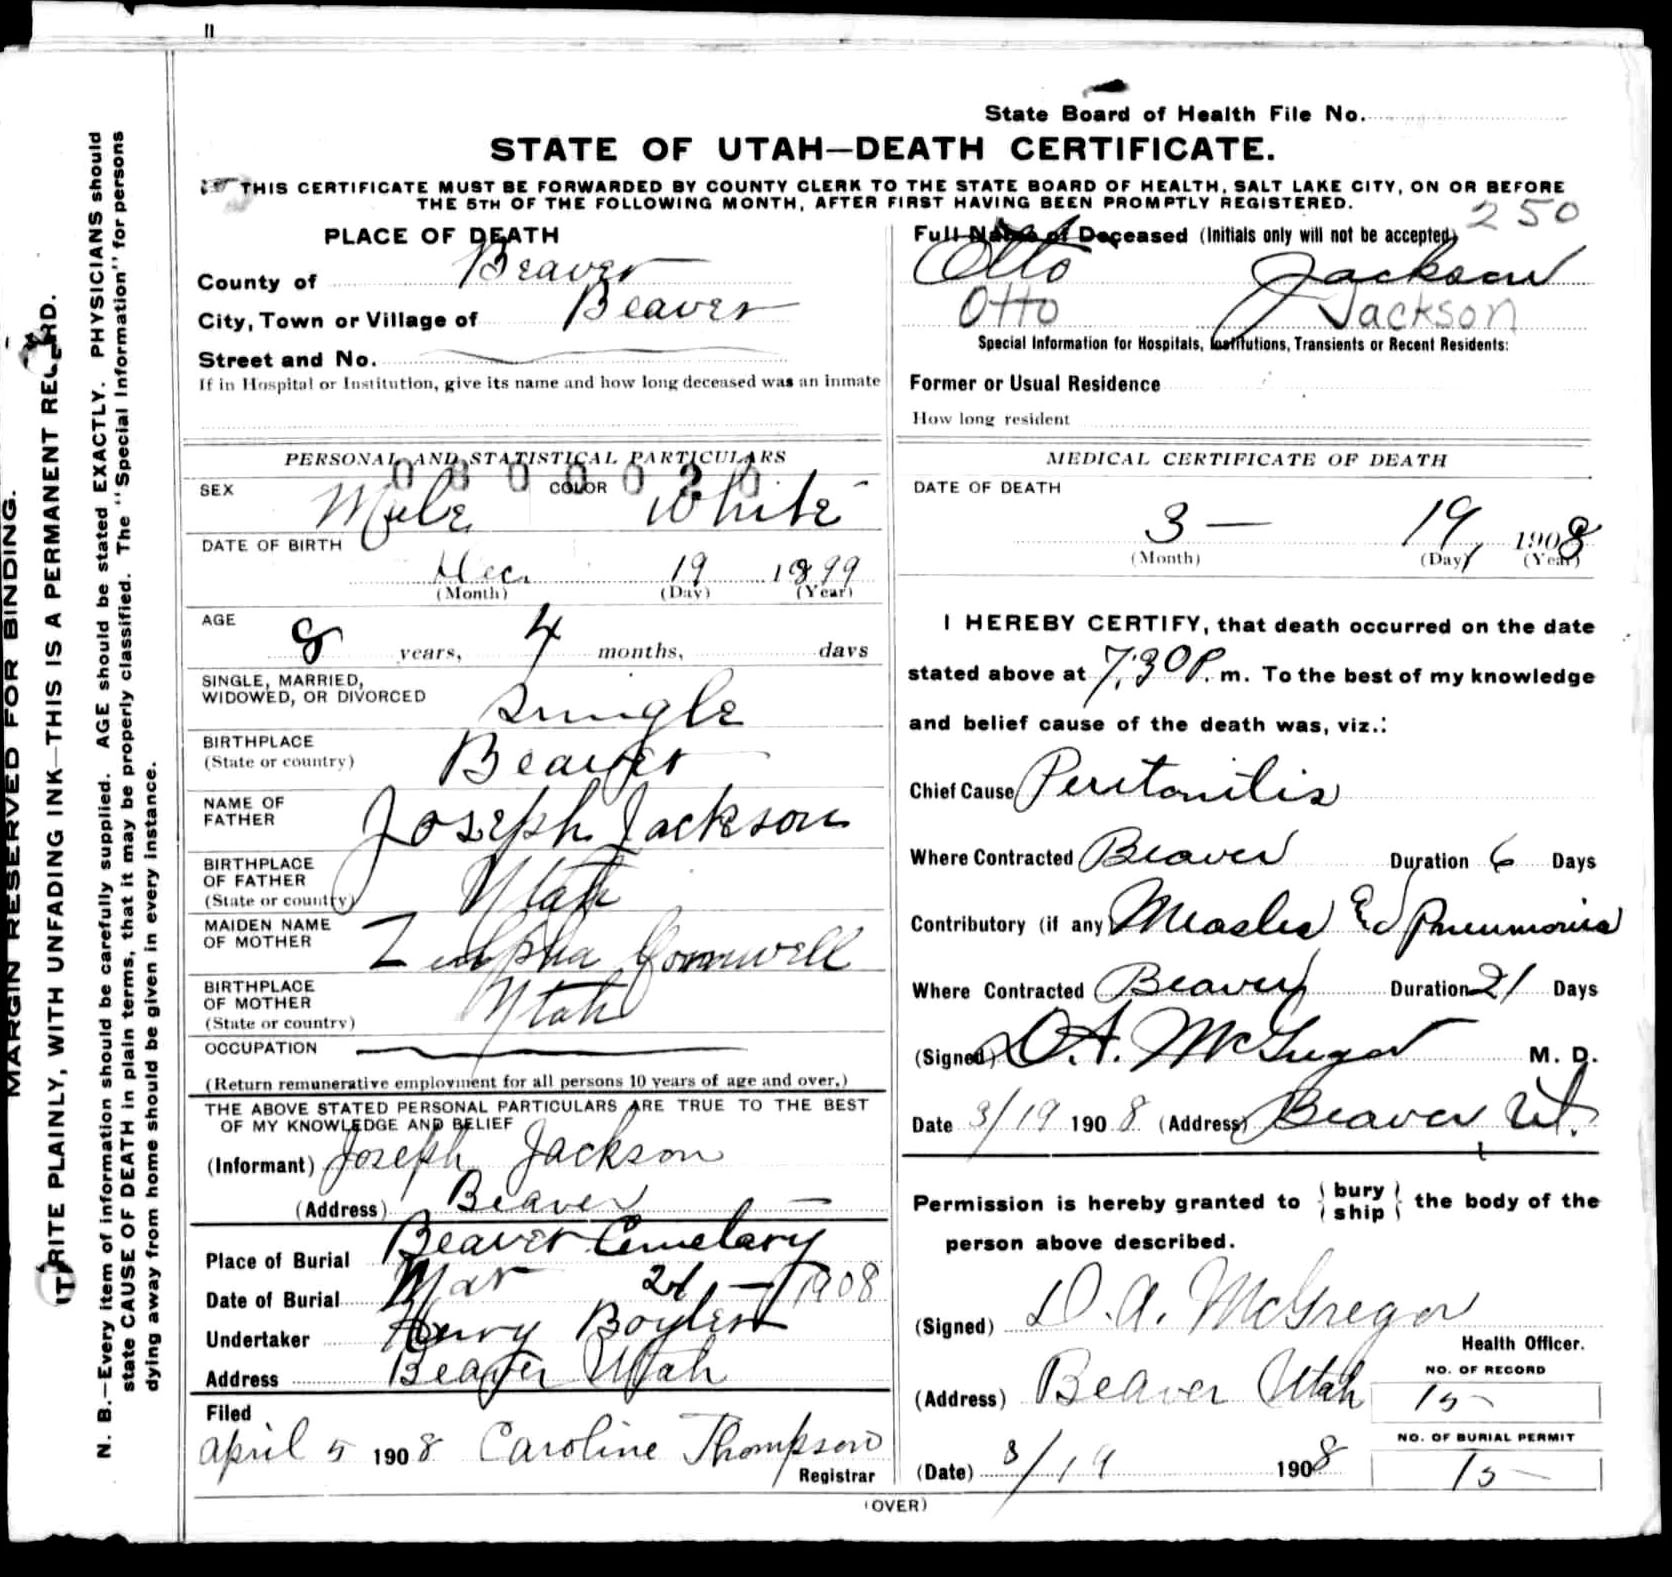 State Board of Health File No.
STATE OF UTAH—DEATH CERTIFICATE.
THIS CERTIFICATE MUST BE FORWARDED BY COUNTY CLERK TO THE STATE BOARD OF HEALTH, SALT LAKE CITY, ON OR BEFORE
THE 5TH OF THE FOLLOWING MONTH, AFTER FIRST HAVING BEEN PROMPTLY REGISTERED.
250
PLACE OF DEATH
County of Beaver
City, Town or Village of Beaver
Street and No.
If in Hospital or Institution, give its name and how long deceased was an inmate
Full Name of Deceased (Initials only will not be accepted)
Otto Jackson
Otto Jackson
Special Information for Hospitals, Institutions, Transients or Recent Residents:
Former or Usual Residence
How long resident
PERSONAL AND STATISTICAL PARTICULARS
SEX Male COLOR White
DATE OF BIRTH
Dec. 19 1899
(Month) (Day) (Year)
AGE
8 years, 4 months, days
SINGLE, MARRIED,
WIDOWED, OR DIVORCED Single
BIRTHPLACE
(State or country) Beaver
NAME OF
FATHER Joseph Jackson
BIRTHPLACE
OF FATHER
(State or country) Utah
MAIDEN NAME
OF MOTHER
BIRTHPLACE
OF MOTHER
(State or country) Utah
OCCUPATION
(Return remunerative employment for all persons 10 years of age and over.)
THE ABOVE STATED PERSONAL PARTICULARS ARE TRUE TO THE BEST
OF MY KNOWLEDGE AND BELIEF
(Informant) Joseph Jackson
(Address) Beaver
Place of Burial Beaver Cemetary
Date of Burial Mar 21 - 1908
Undertaker Henry
Address Beaver Utah
Filed
April 5 1908 Caroline Thompson
Registrar
MEDICAL CERTIFICATE OF DEATH
DATE OF DEATH
3 — 19, 1908
(Month) (Day) (Year)
I HEREBY CERTIFY, that death occurred on the date
stated above at 7:30 P. m. To the best of my knowledge
and belief cause of the death was, viz.:
Chief Cause Peritonitis
Where Contracted Beaver Duration 6 Days
Contributory (if any) Measles & Pneumonia
Where Contracted Beaver Duration 21 Days
(Signed) D. A. McGregor M. D.
Date 3/19 1908 (Address) Beaver Ut.
Permission is hereby granted to { bury ship } the body of the
person above described.
(Signed) D. A. McGregor
Health Officer.
(Address) Beaver Utah
NO. OF RECORD
15
NO. OF BURIAL PERMIT
15
(Date) 3/19 1908
(OVER)
MARGIN RESERVED FOR BINDING.
WRITE PLAINLY, WITH UNFADING INK—THIS IS A PERMANENT RECORD.
N. B.—Every item of information should be carefully supplied. AGE should be stated EXACTLY. PHYSICIANS should
state CAUSE OF DEATH in plain terms, that it may be properly classified. The "Special Information" for persons
dying away from home should be given in every instance.